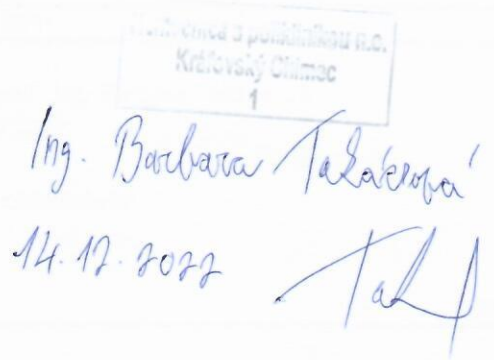 s poliklinikou n.o.
Kráľovský Chlmec
1
Ing. Barbara Takácsová
14.12.2022